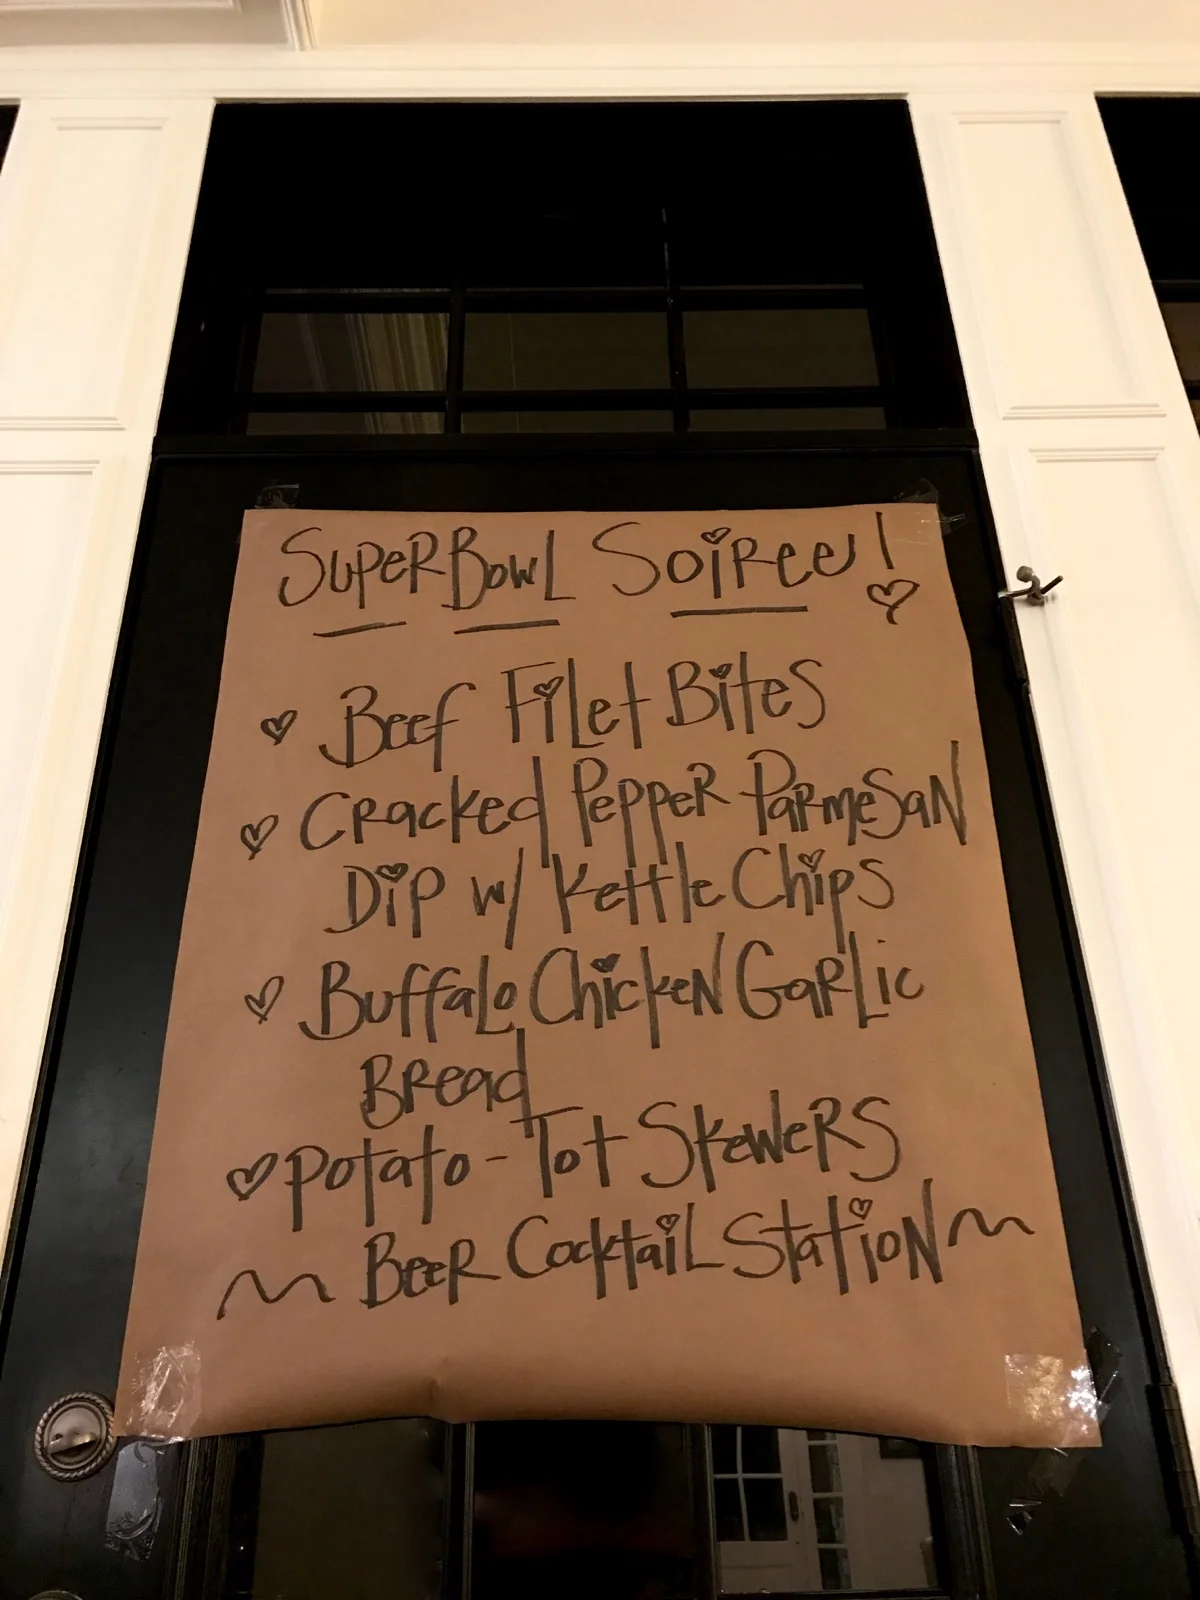 SuperBowl Soiree!
Beef Filet Bites
Cracked Pepper Parmesan
Dip w/ Kettle Chips
Buffalo Chicken Garlic
Bread
Potato-Tot Skewers
~ Beer Cocktail Station ~